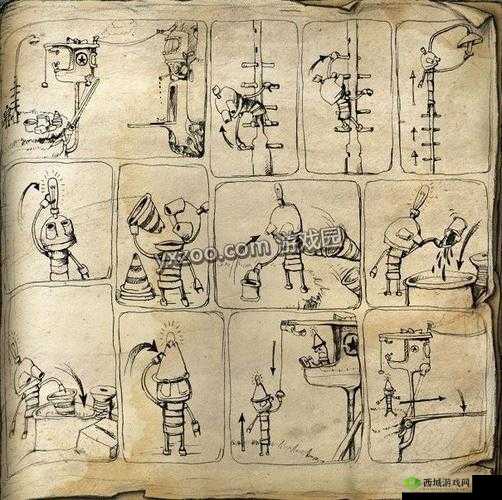 yxzoo.com 游戏园
西域游戏网